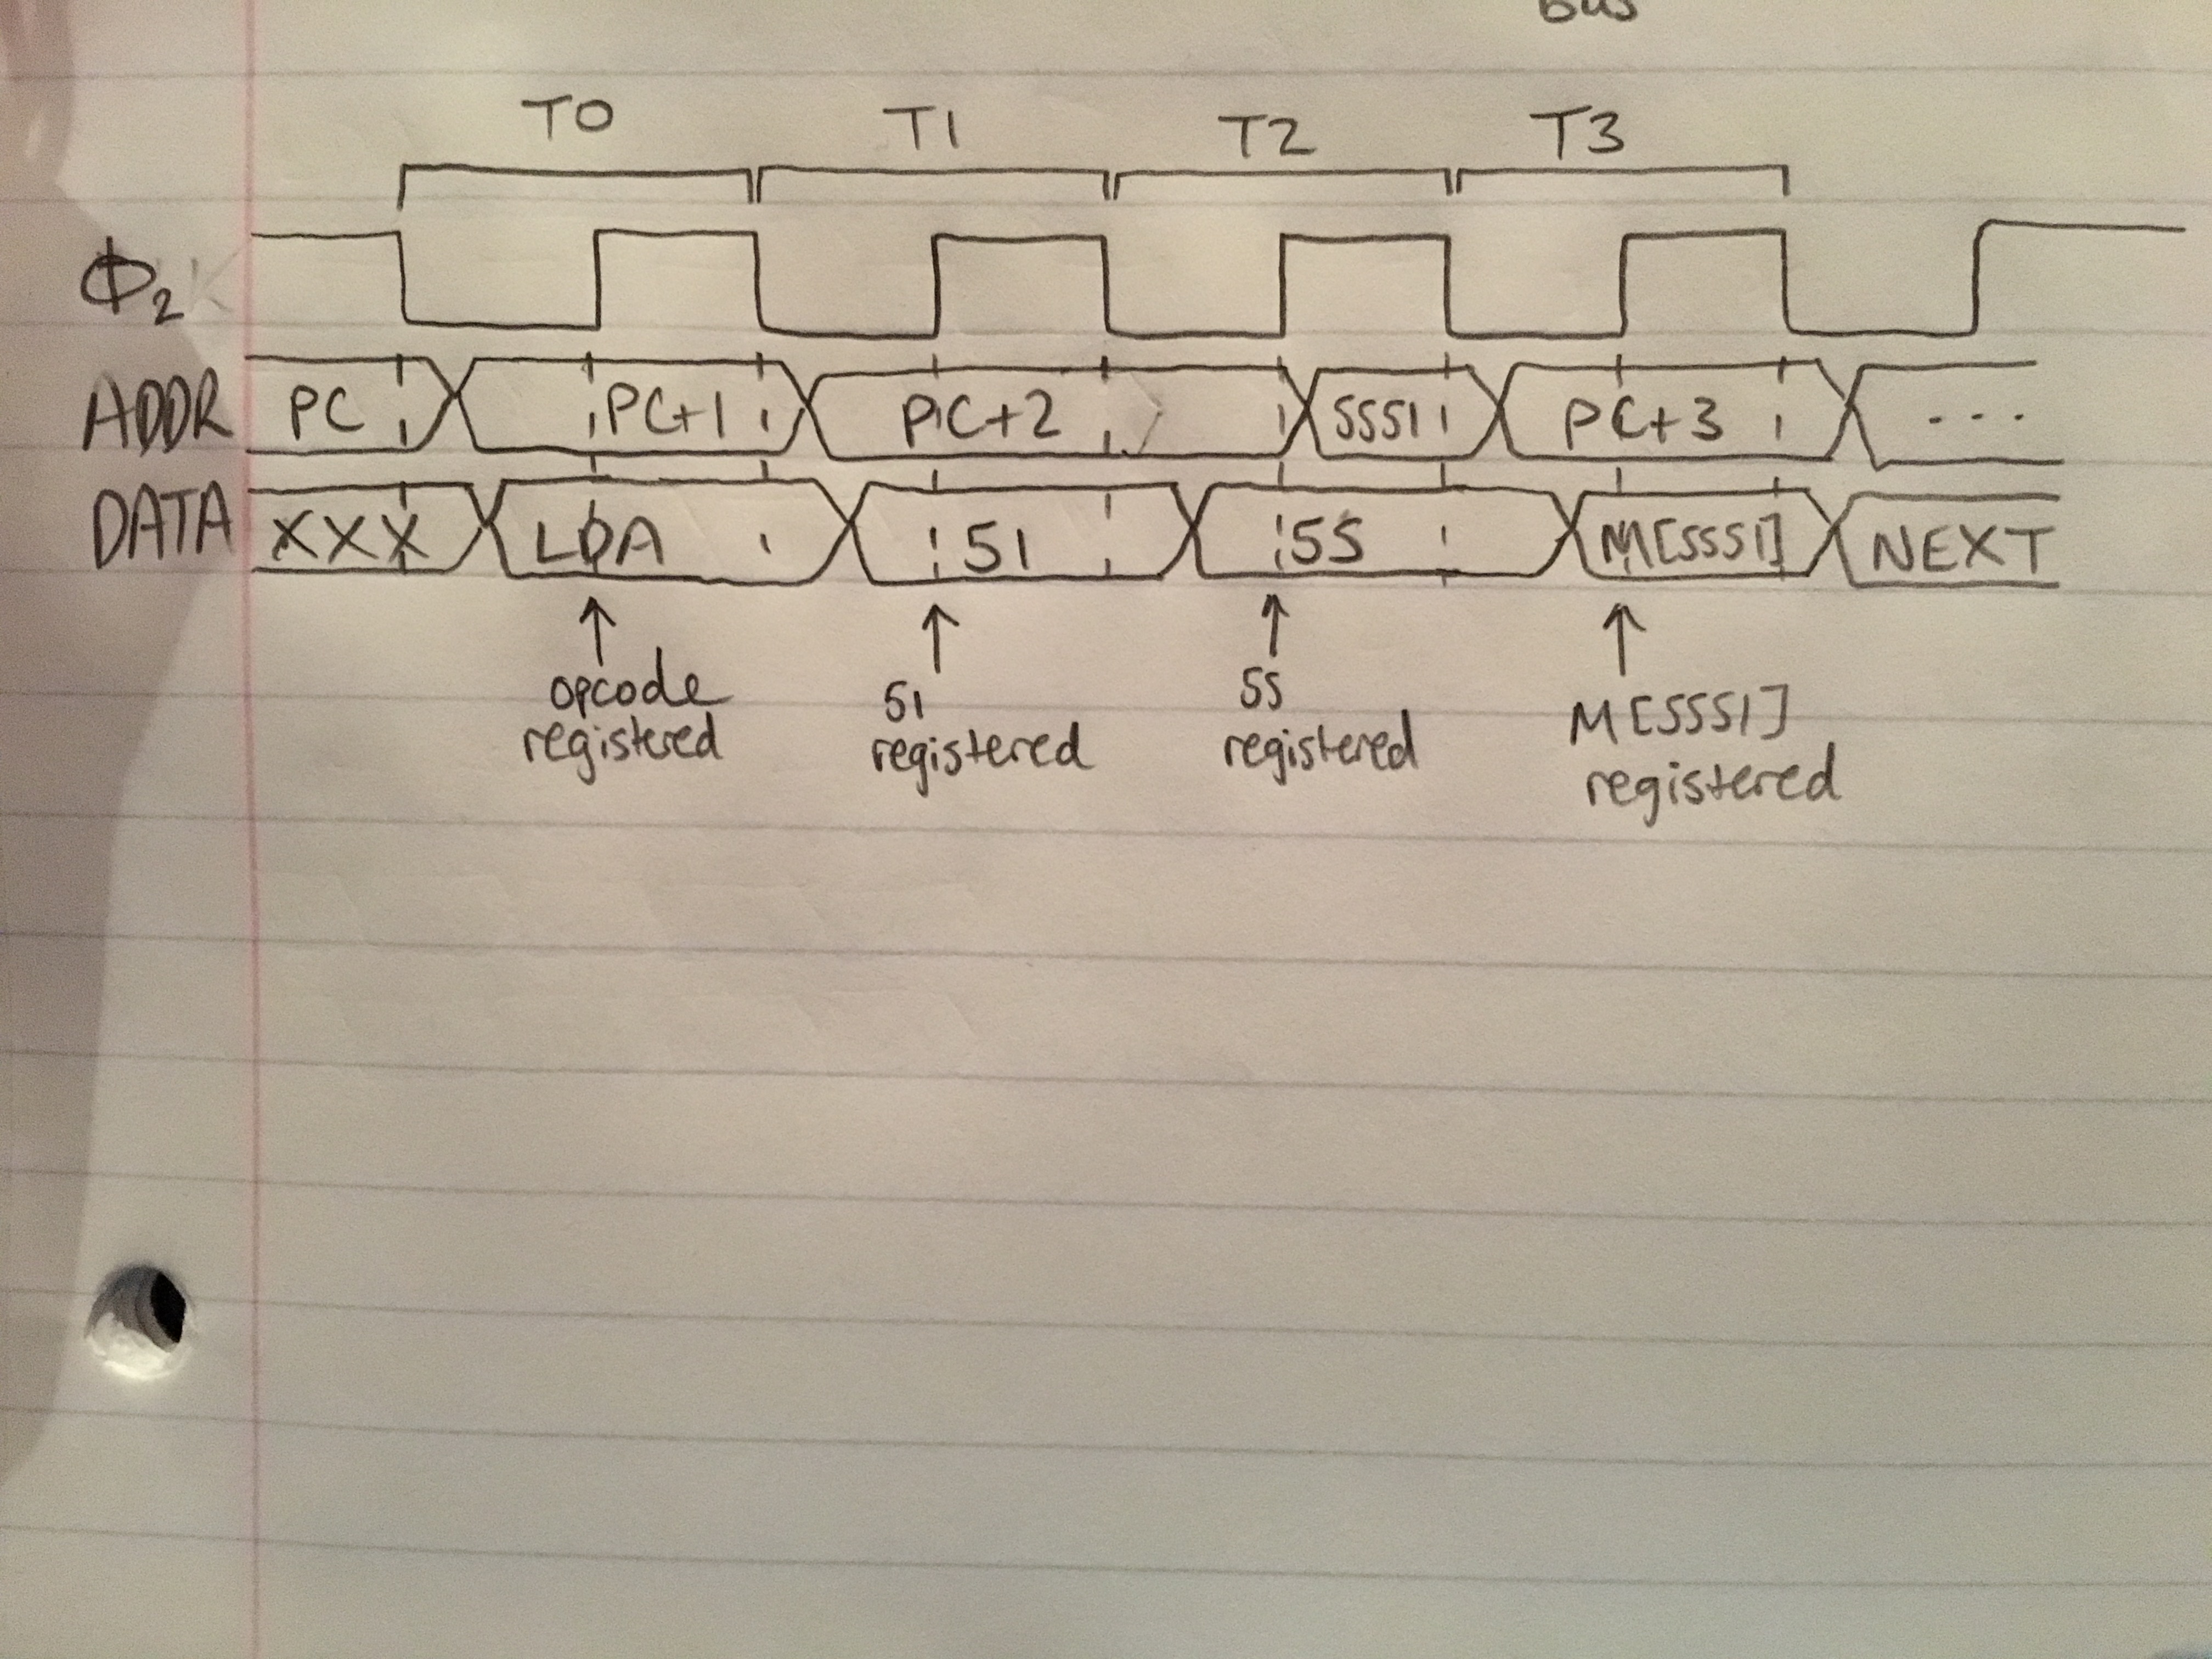 bus
T0 T1 T2 T3
Φ2
ADDR PC PC+1 PC+2 5551 PC+3 ...
DATA XXX LDA 51 55 M[5551] NEXT
opcode registered
51 registered
55 registered
M[5551] registered